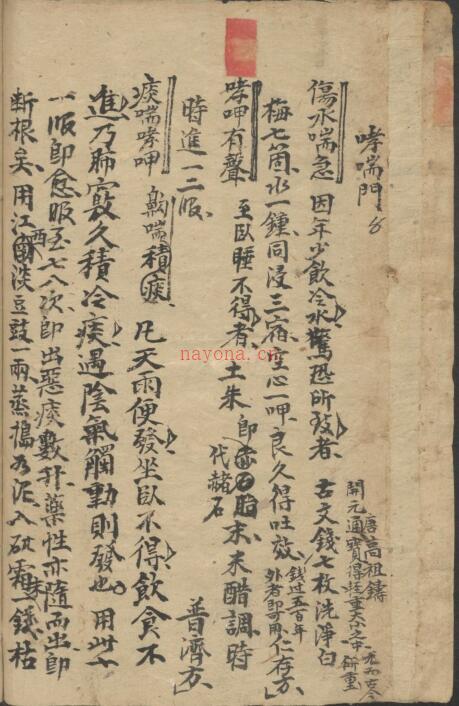 哮喘門
唐高祖鑄
開元通寶得輕重大小之中
傷水喘急 因年少飲冷水驚恐所致者 古文錢七枚洗淨白
梅七箇水一鍾同浸三宿空心一呷良久得吐效 錢过五百年外者即可用 仁存方
哮呷有聲 至臥睡不得者土朱 即赤石脂 代赭石 末米醋調時
時進一二服 普濟方
痰喘哮呷 齁喘積痰 凡天雨便發坐臥不得飲食不
進乃肺竅久積冷痰遇陰氣觸動則發也用此
一服即愈服至七八次即出惡痰數升藥性亦隨而出即
断根矣用江西淡豆豉一兩蒸搗为泥入砒霜末一錢枯
nayona.cn